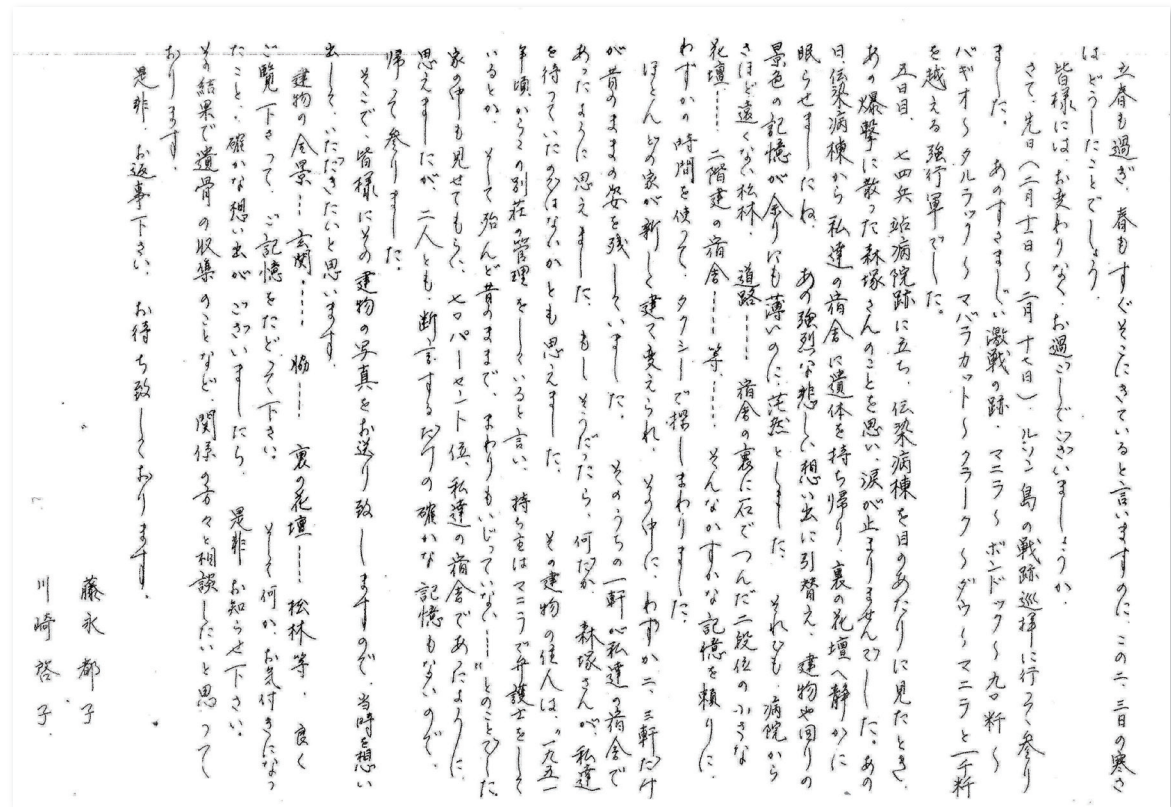 立春も過ぎ、春もすぐそこにきていると言いますのに、この二、三日の寒さ
はどうしたことでしょう。
皆様には、お変わりなく、お過ごしでございましょうか。
さて、先日(二月十一日～二月十七日)、ルソン島の戦跡巡拝に行って参り
ました。あのすさまじい激戦の跡、マニラ～ボンドック～九〇粁～
バギオ～タルラック～マバラカット～クラーク～ダウ～マニラと一千粁
を越える強行軍でした。
五日目、七四兵站病院跡に立ち、伝染病棟を目のあたりに見たとき、
あの爆撃に散った森塚さんのことを思い、涙が止まりませんでした。あの
日、伝染病棟から私達の宿舎に遺体を持ち帰り、裏の花壇へ静かに
眠らせましたね。あの強烈な悲しい想い出に引替え、建物や回りの
景色の記憶が余りにも薄いのに、茫然としました。それでも、病院から
さほど遠くない松林、道路……宿舎の裏に石でつんだ二段位の小さな
花壇……二階建の宿舎……等……そんなかすかな記憶を頼りに、
わずかの時間を使って、タクシーで探しまわりました。
ほとんどの家が新しく建て変えられ、その中に、わずか二、三軒だけ
が昔のままの姿を残していました。そのうちの一軒が私達の宿舎で
あったように思えました。もしそうだったら、何だか、森塚さんが、私達
を待っていたのではないかとも思えました。その建物の住人は、“一九五一
年頃からこの別荘の管理をしていると言い、持ち主はマニラで弁護士をして
いるとか、そして殆んど昔のままで、まわりもいじっていない……”とのことでした。
家の中も見せてもらい、七〇パーセント位、私達の宿舎であったように、
思えましたが、二人とも、断言するだけの確かな記憶もないので、
帰って参りました。
そこで、皆様にその建物の写真をお送り致しますので、当時を想い
出して、いただきたいと思います。
建物の全景……玄関……脇……裏の花壇……松林等、良く
ご覧下さって、ご記憶をたどって下さい。そして何か、お気付きになっ
たこと、確かな想い出がございましたら、是非お知らせ下さい。
その結果で遺骨の収集のことなど、関係の方々と相談したいと思って
おります。
是非、お返事下さい。お待ち致しております。
藤永都子
川崎啓子